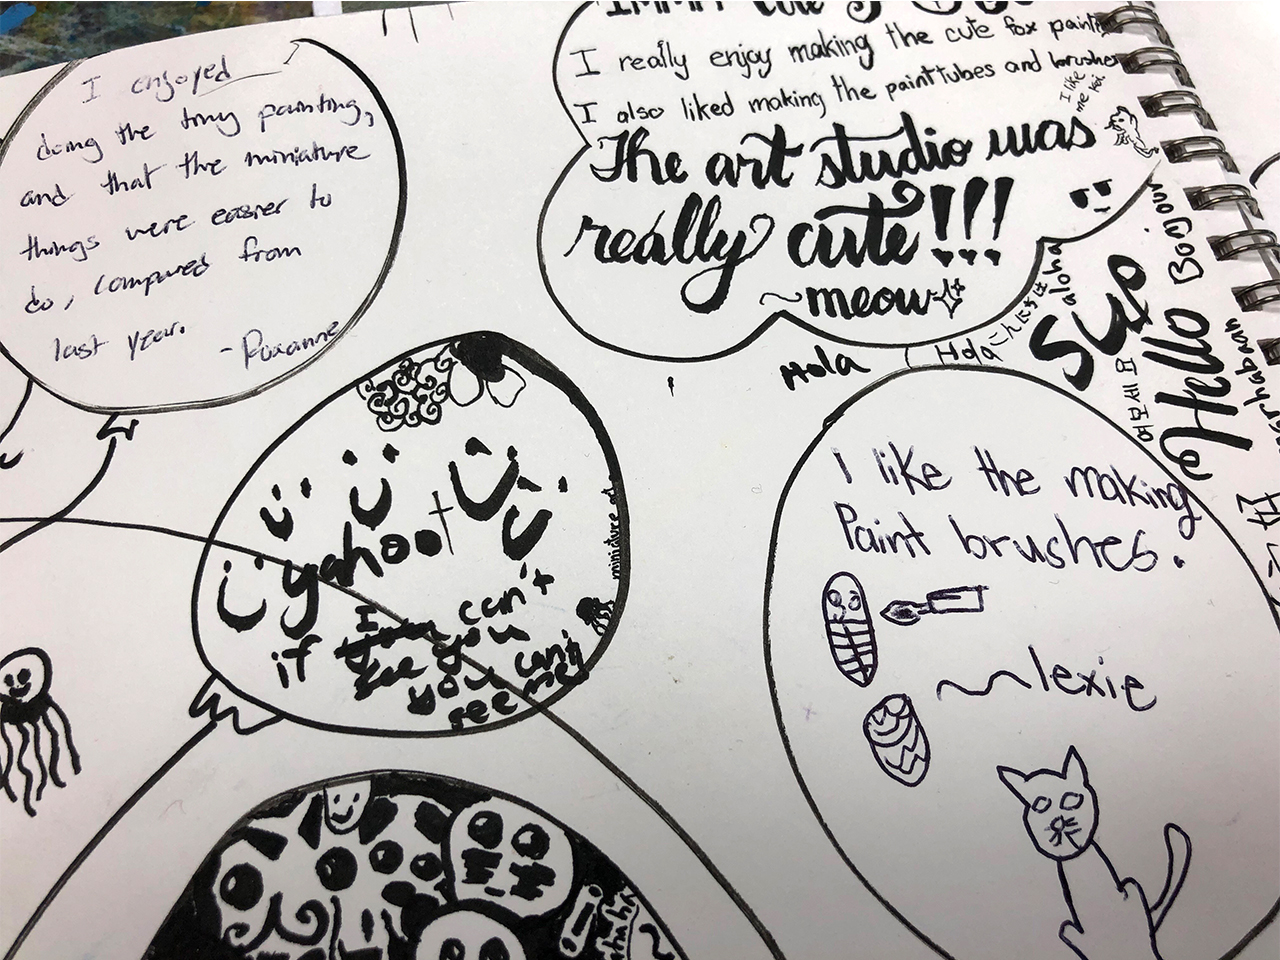 I enjoyed
doing the tiny painting,
and that the miniature
things were easier to
do, compared from
last year.
-Roxanne
I really enjoy making the cute fox paint
I also liked making the painttubes and brushes
I like
me koi
The art studio was
really cute!!!
~meow
Hola
Hola
こんにちは
aloha
Hello
Bonjour
여보세요
yahoot
miniature art
if I can't
see you
you can't
see me!!
I like the making
Paint brushes.
~lexie